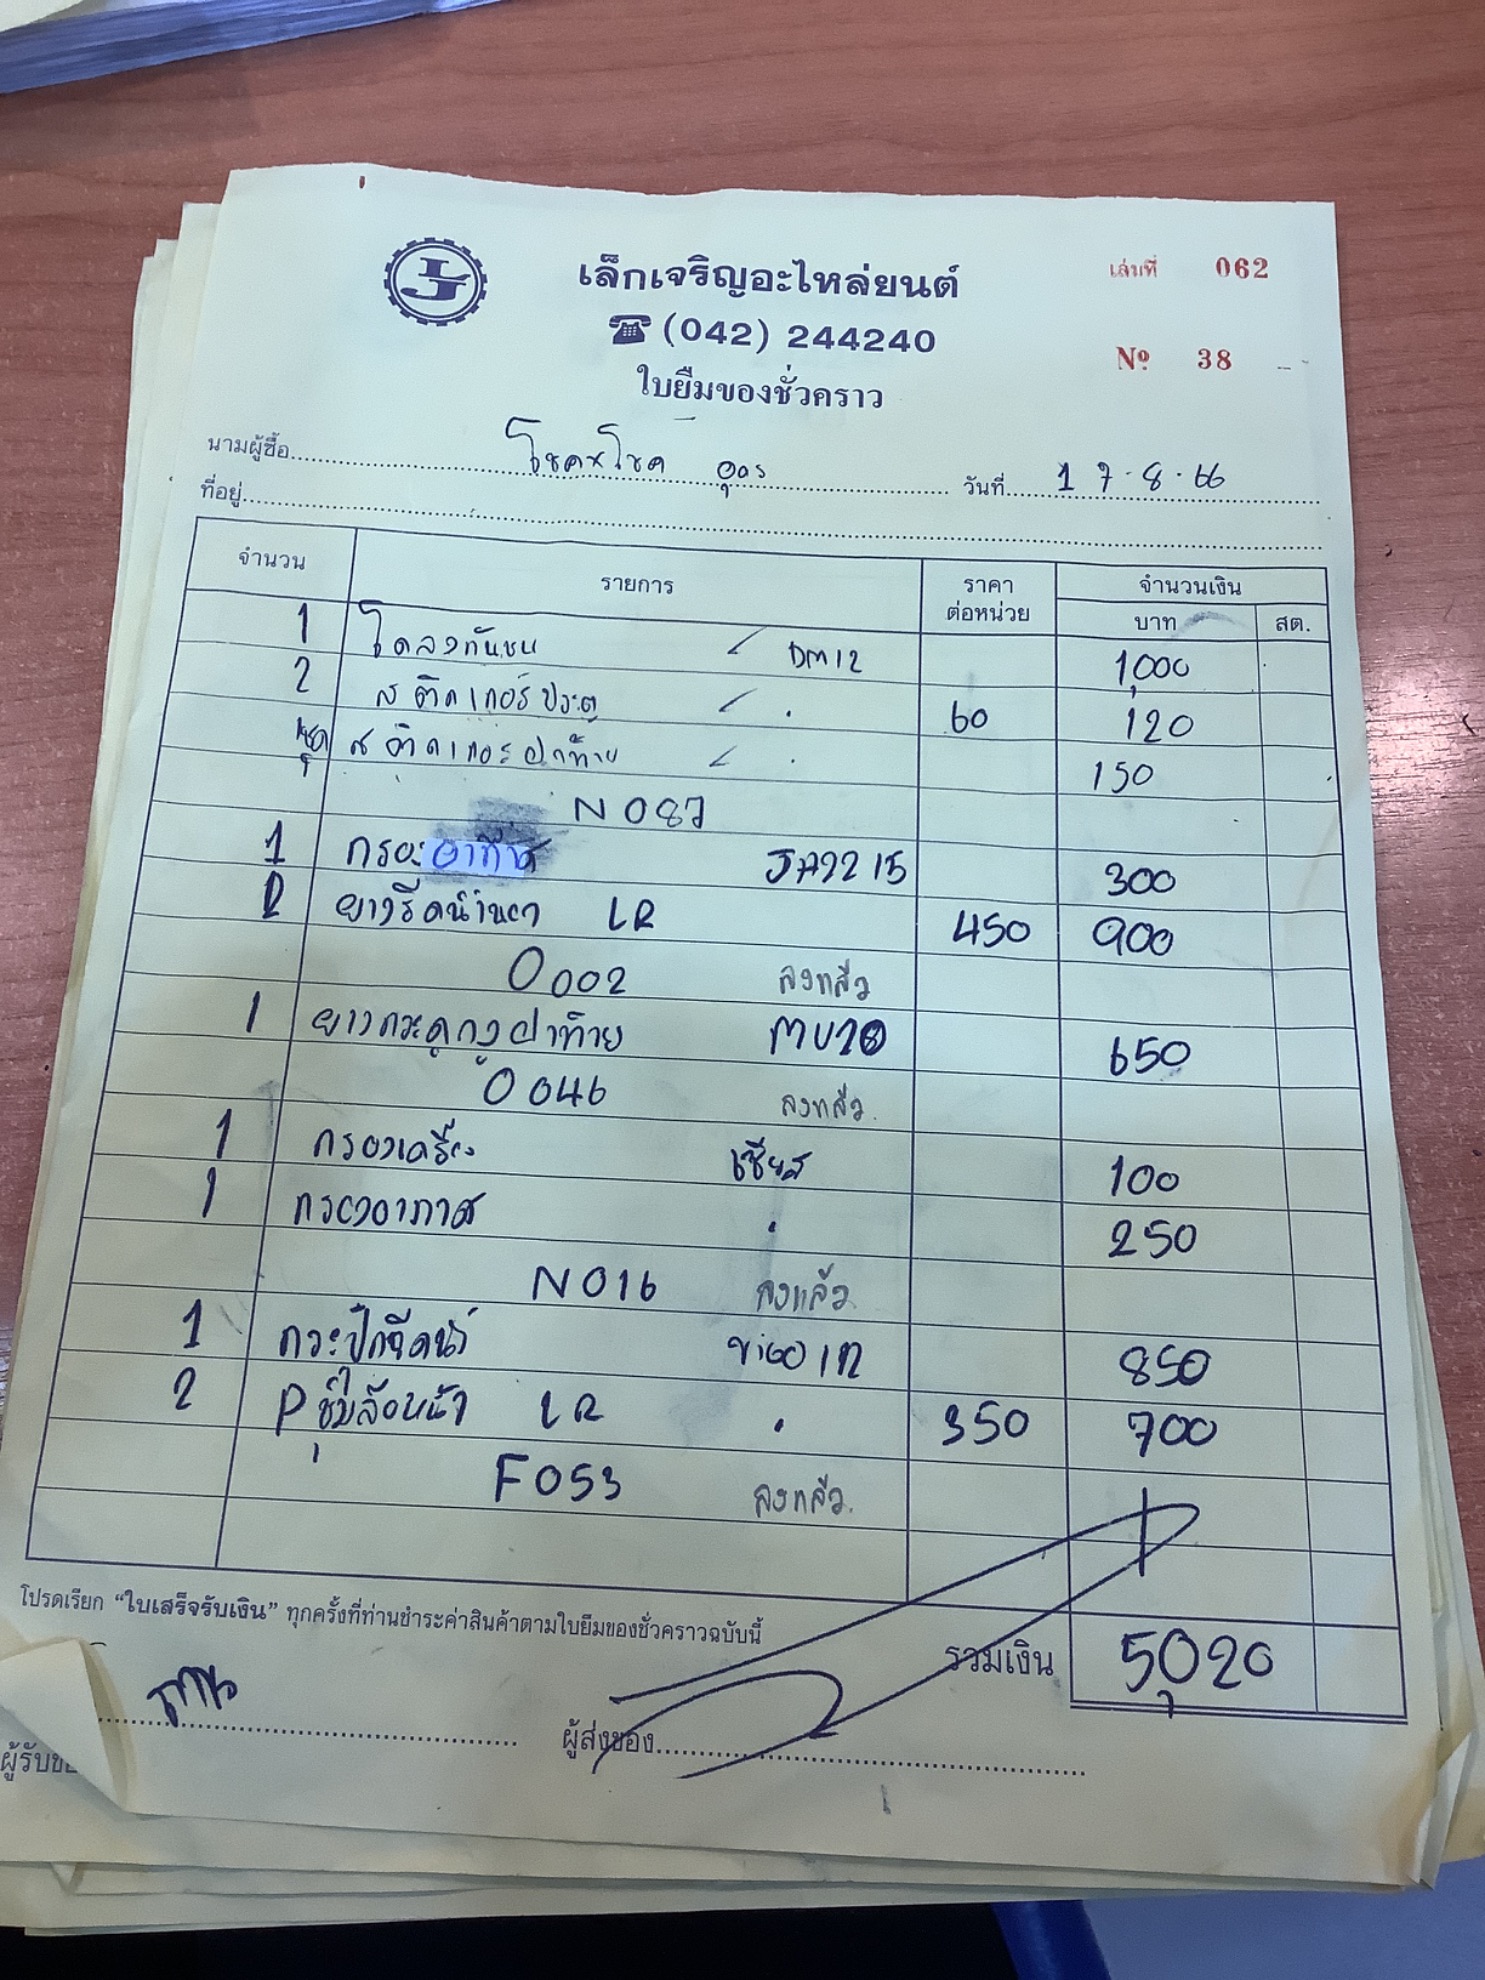 เล็กเจริญอะไหล่ยนต์ เล่มที่ 062
(042) 244240
Nº 38
ใบยืมของชั่วคราว
นามผู้ซื้อ โชคxโชค อุดร วันที่ 17.8.66
ที่อยู่
จำนวน รายการ ราคาต่อหน่วย จำนวนเงิน
บาท สต.
1 โครงกันชน DM12 1,000
2 สติกเกอร์ประตู 60 120
ชุด สติกเกอร์ฝาท้าย 150
N087
1 JA2215 300
2 ยางรีดน้ำนอก LR 450 900
0002 ลงแล้ว
1 ยางกระดูกงูฝาท้าย 650
0046 ลงแล้ว
1 กรองเครื่อง 100
1 กรองอากาศ 250
N016 ลงแล้ว
1 กระป๋องฉีดน้ำ 850
2 LR 350 700
F053 ลงแล้ว
โปรดเรียก “ใบเสร็จรับเงิน” ทุกครั้งที่ท่านชำระค่าสินค้าตามใบยืมของชั่วคราวฉบับนี้
รวมเงิน 5,020
ผู้ส่งของ